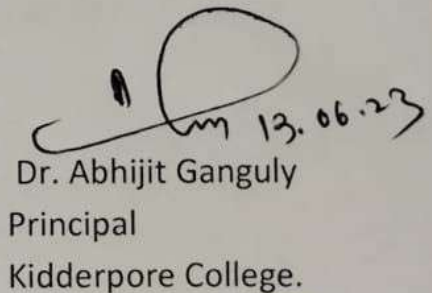 13.06.23
Dr. Abhijit Ganguly
Principal
Kidderpore College.